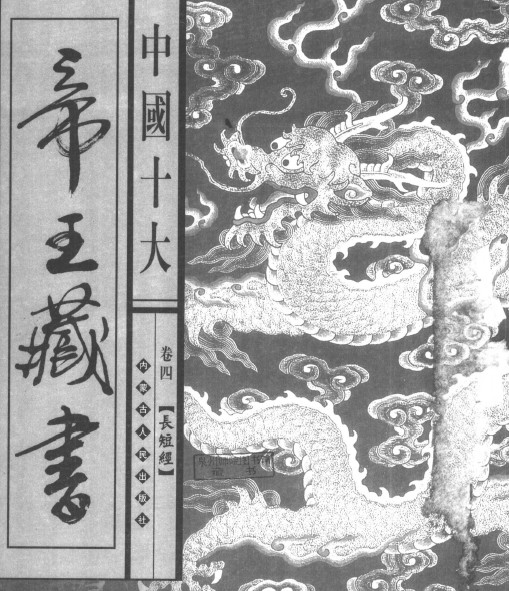 中國十大
帝王藏書
卷四
【長短經】
内蒙古人民出版社